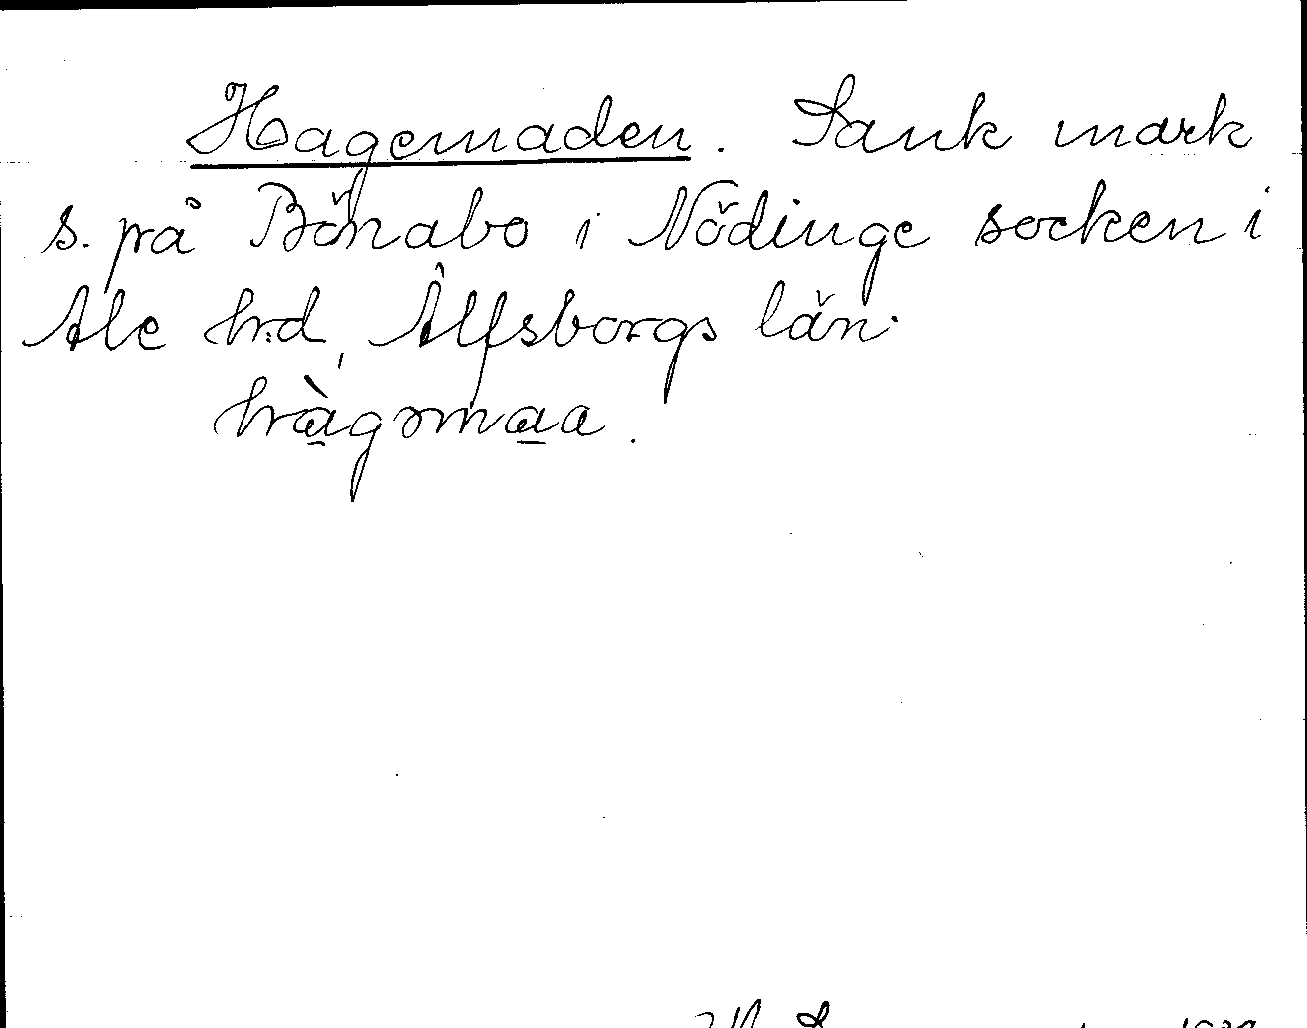 Hagemaden. Sank mark
s. på Bönabo i Nödinge socken i
Ale hd, Älfsborgs län.
hàgəmaa.